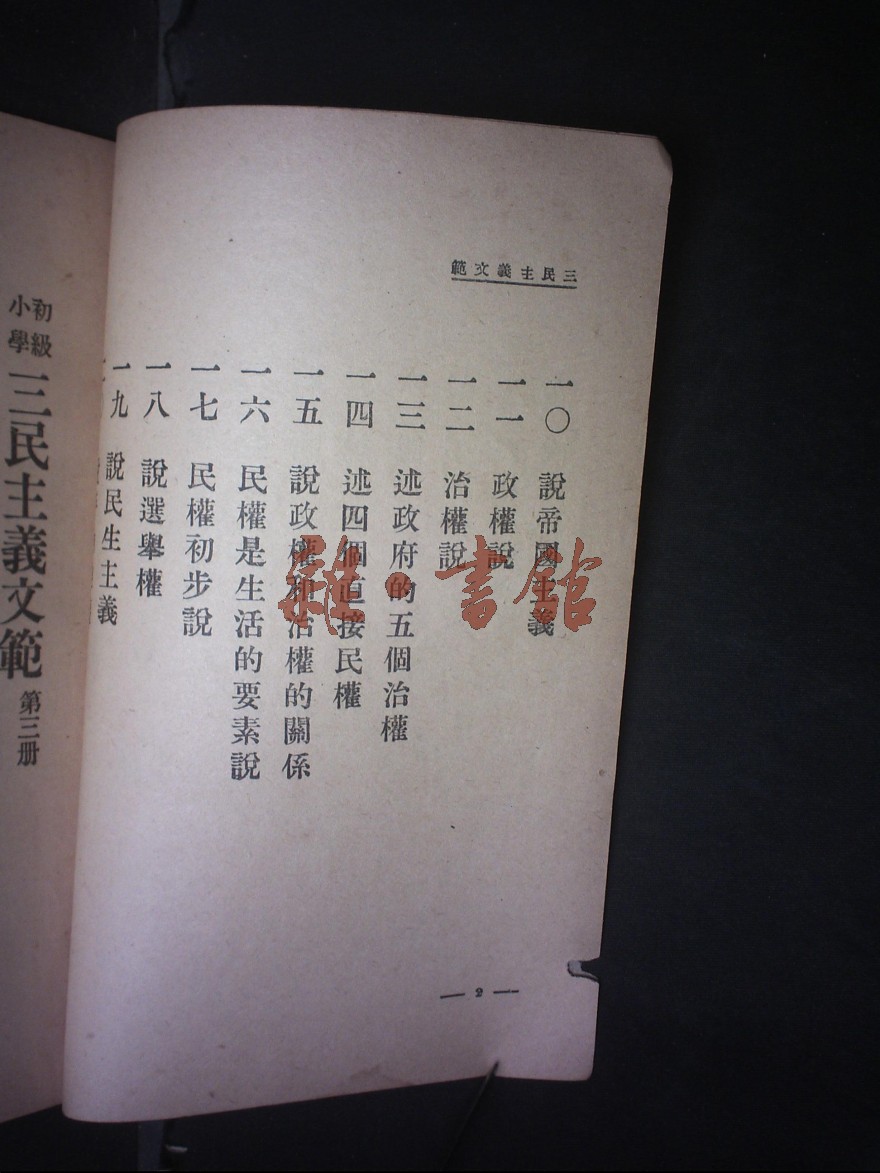 三民主義文範
一〇 說帝國主義
一一 政權說
一二 治權說
一三 述政府的五個治權
一四 述四個直接民權
一五 說政權和治權的關係
一六 民權是生活的要素說
一七 民權初步說
一八 說選舉權
一九 說民生主義
— 2 —
初級小學 三民主義文範 第三册
雜·書館